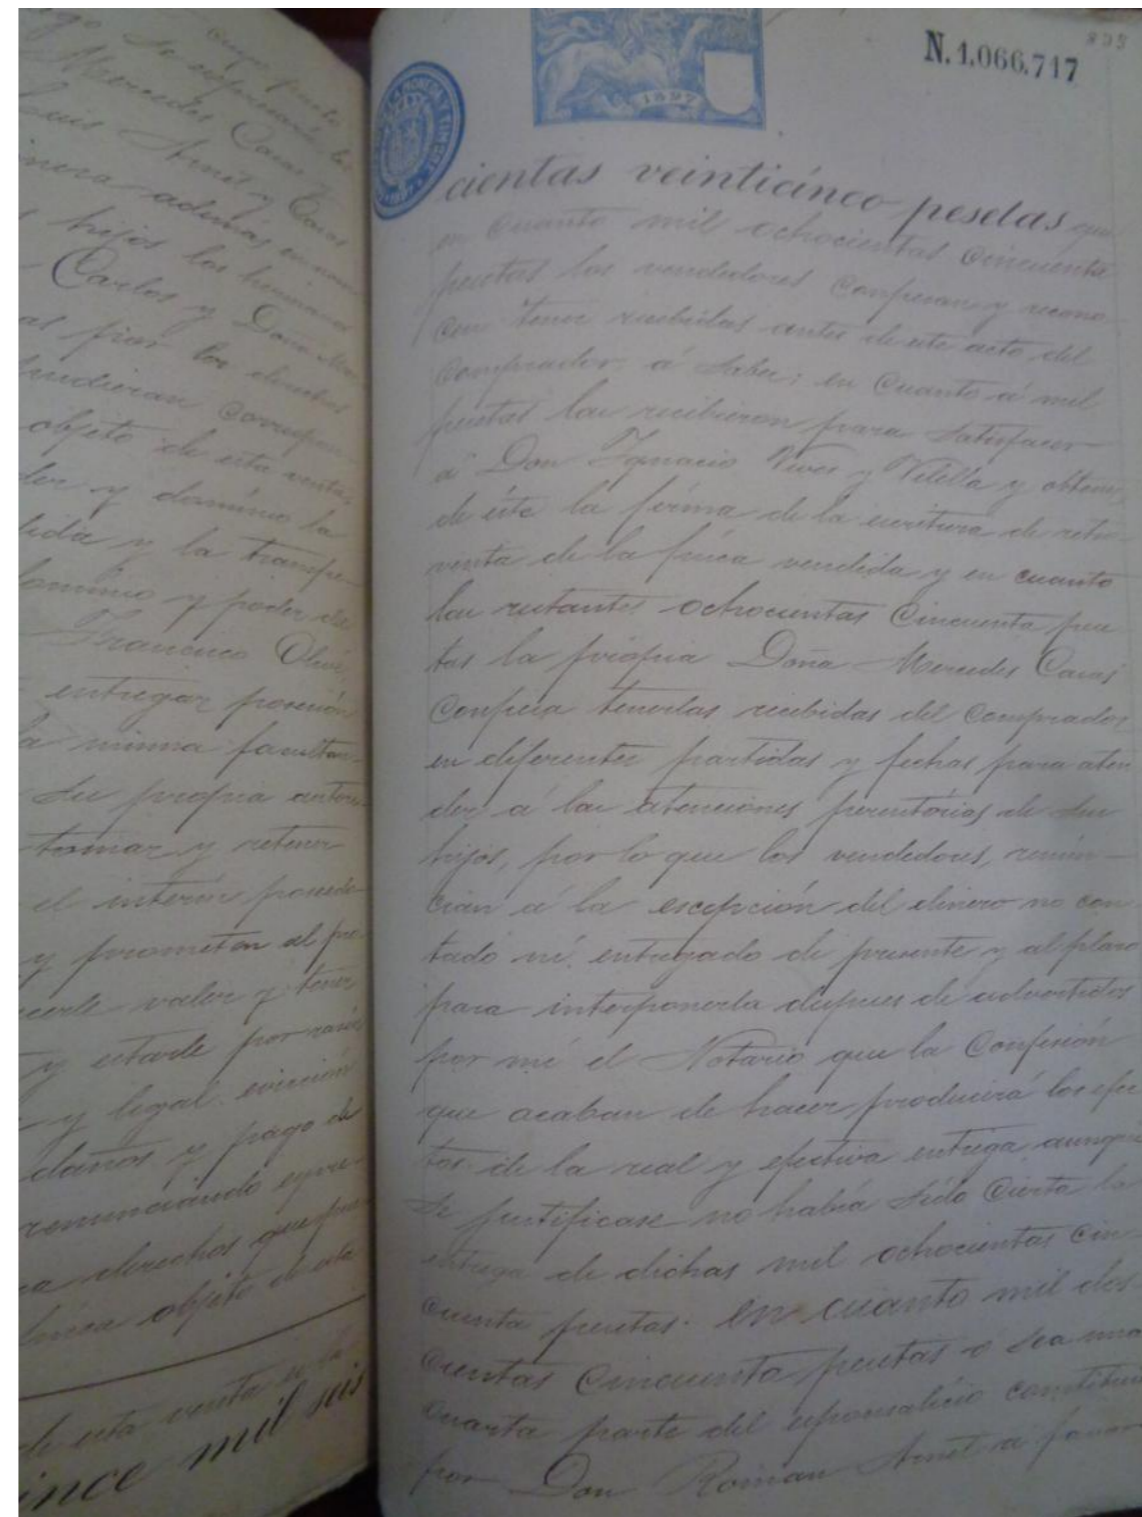 cinco fuese
go se reservará la
Mercedes Casas y
Luis Amet y Casas
nera además en nom-
hijos los hermanos
Carlos y Doña Mer-
as fias los derechos
pudieran correspon-
objeto de esta venta,
der y dominio la
lidia y la transfie-
dominio y poder de
Francisco Olivé
entregar posesión
a misma facultan-
su propia autori-
tomar y retener
el interin poseedo-
y prometen al pro-
cerle valer y tener
y estarle por razón
y legal evicción
daños y pago de
renunciando espre-
a derechos que pue-
finca objeto de este
de esta venta es la
ince mil seis
1897
N. 1.066.717
cientas veinticinco pesetas que
en cuanto mil ochocientas cincuenta
pesetas los vendedores confiesan y recono-
cen tener recibidas antes de este acto del
comprador: á saber; en cuanto á mil
pesetas las recibieron para satisfacer
á Don Ignacio Vives y Vilella y obtener
de éste la firma de la escritura de retro-
venta de la finca vendida y en cuanto
las restantes ochocientas cincuenta pese
tas la própia Doña Mercedes Casas
confiesa tenerlas recibidas del comprador
en diferentes partidas y fechas para aten
der á las atenciones perentorias de sus
hijos, por lo que los vendedores, renun-
cian á la escepción del dinero no con
tado ni entregado de presente y al plazo
para interponerla despues de advertidos
por mi el Notario que la confesión
que acaban de hacer producirá los efec
tos de la real y efectiva entrega aunque
se justificase no había sido cierta la
entrega de dichas mil ochocientas cin-
cuenta pesetas. en cuanto mil dos
cientas cincuenta pesetas ó sea una
cuarta parte del esponsalicio constituido
por Don Roman Amet a favor